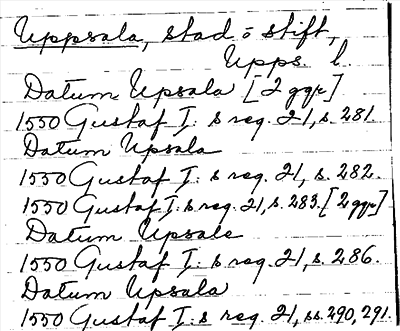 Uppsala, stad o stift,
Upps. l.
Datum Upsala [2 ggr]
1550 Gustaf I: s reg. 21, s. 281
Datum Upsala
1550 Gustaf I: s reg. 21, s. 282.
1550 Gustaf I: s reg. 21, s. 283. [2 ggr]
Datum Upsale
1550 Gustaf I: s reg. 21, s. 286.
Datum Upsala
1550 Gustaf I: s reg. 21, ss. 290, 291.